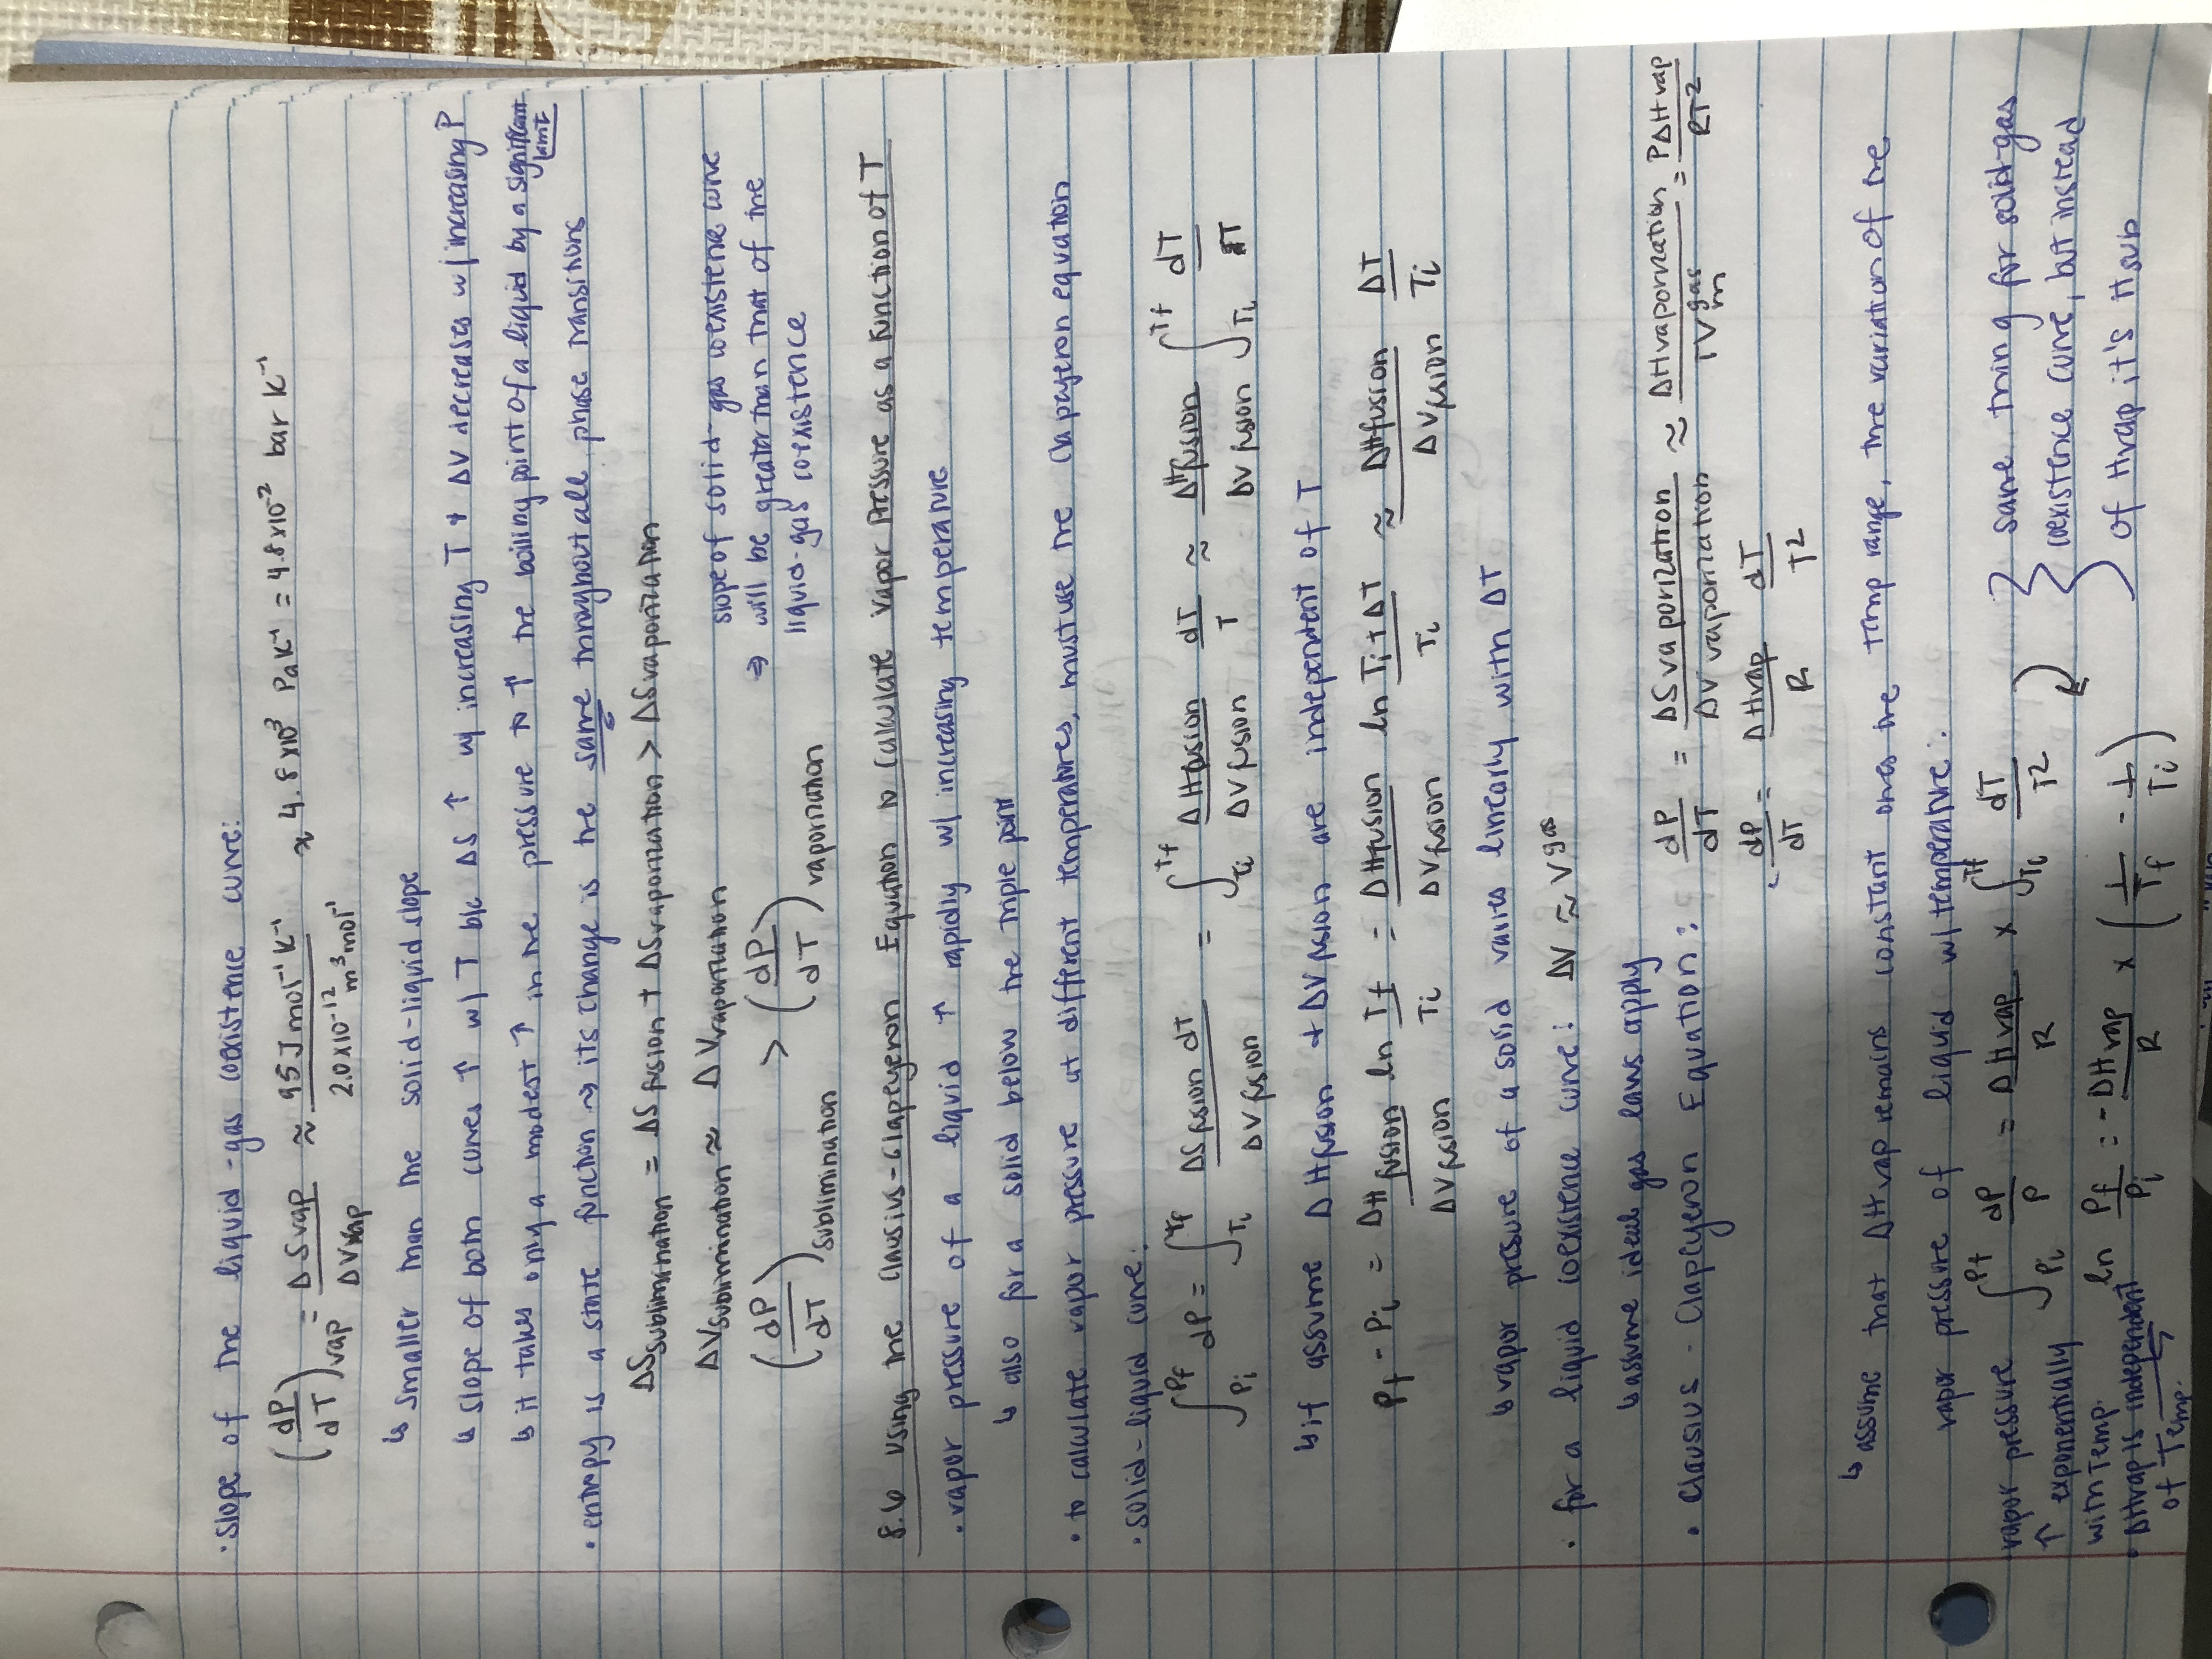 · slope of the liquid-gas coexistence curve:
(dP/dT)vap = ΔSvap/ΔVvap ≈ 95 J mol⁻¹ K⁻¹ / 2.0x10⁻¹² m³ mol⁻¹ ≈ 4.8x10³ Pa K⁻¹ = 4.8x10⁻² bar K⁻¹
↳ smaller than the solid-liquid slope
↳ slope of both curves ↑ w/ T b/c ΔS ↑ w/ increasing T + ΔV decreases w/ increasing P
↳ it takes only a modest ↑ in the pressure to ↑ the boiling point of a liquid by a significant
amt
· entropy is a state function → its change is the same throughout all phase transitions
ΔSsublimination = ΔSfusion + ΔSvaporization > ΔSvaporization
ΔVsublimination ≈ ΔVvaporization
(dP/dT)sublimination > (dP/dT)vaporization
⇒ slope of solid-gas coexistence curve
will be greater than that of the
liquid-gas coexistence
8.6 Using the Clausius-Clapeyeron Equation to Calculate Vapor Pressure as a Function of T
· vapor pressure of a liquid ↑ rapidly w/ increasing temperature
↳ also for a solid below the triple point
· to calculate vapor pressure at different temperatures, must use the Clapeyeron equation
· solid-liquid curve:
∫Pi^Pf dP = ∫Ti^Tf ΔSfusion dT/ΔVfusion = ∫Ti^Tf ΔHfusion/ΔVfusion dT/T ≈ ΔHfusion/ΔVfusion ∫Ti^Tf dT/T
↳ if assume ΔHfusion + ΔVfusion are independent of T
Pf - Pi = ΔHfusion/ΔVfusion ln Tf/Ti = ΔHfusion/ΔVfusion ln Ti+ΔT/Ti ≈ ΔHfusion/ΔVfusion ΔT/Ti
↳ vapor pressure of a solid varies linearly with ΔT
· for a liquid coexistence curve: ΔV ≈ V^gas
↳ assume ideal gas laws apply
· Clausius-Clapeyeron Equation: dP/dT = ΔSvaporization/ΔVvaporization ≈ ΔHvaporization/TVm^gas = PΔHvap/RT²
dP/dT = ΔHvap/R dT/T²
↳ assume that ΔHvap remains constant over the temp range, the variation of the
vapor pressure of liquid w/ temperature:
∫Pi^Pf dP/P = ΔHvap/R x ∫Ti^Tf dT/T²
ln Pf/Pi = -ΔHvap/R x (1/Tf - 1/Ti)
same thing for solid-gas
coexistence curve, but instead
of Hvap it's Hsub
vapor pressure
↑ exponentially
with Temp.
· ΔHvap is independent
of Temp.